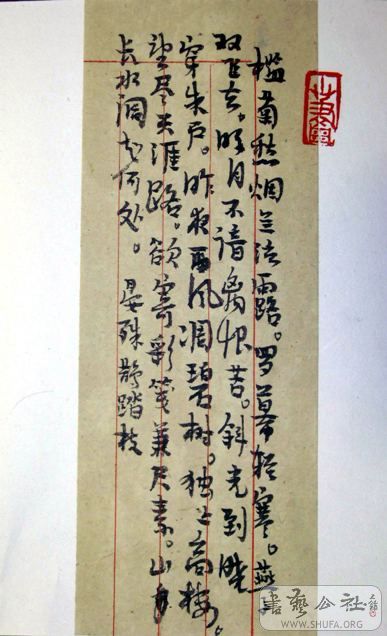 槛菊愁烟兰泣露。罗幕轻寒。燕子
双飞去。明月不谙离恨苦。斜光到晓
穿朱户。昨夜西风凋碧树。独上高楼。
望尽天涯路。欲寄彩笺兼尺素。山
长水阔知何处。 晏殊鹊踏枝
書藝公社
WWW.SHUFA.ORG